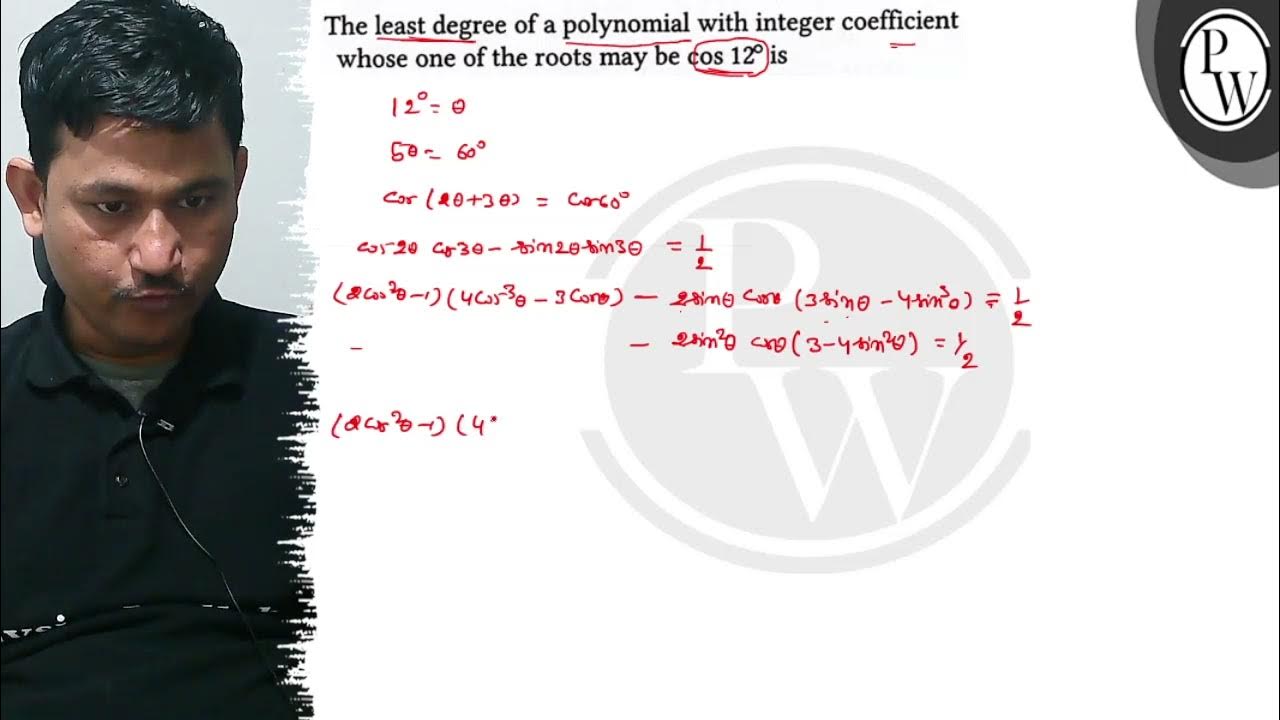 The least degree of a polynomial with integer coefficient
whose one of the roots may be cos 12° is
12° = θ
5θ = 60°
cos (2θ+3θ) = cos60°
cos2θ cos3θ - sin2θ sin3θ = 1/2
(2cos²θ-1) (4cos³θ - 3cosθ) - 2sinθ cosθ (3sinθ - 4sin³θ) = 1/2
- - 2sin²θ cosθ (3-4sin²θ) = 1/2
(2cos²θ-1) (4
P
W
P
W